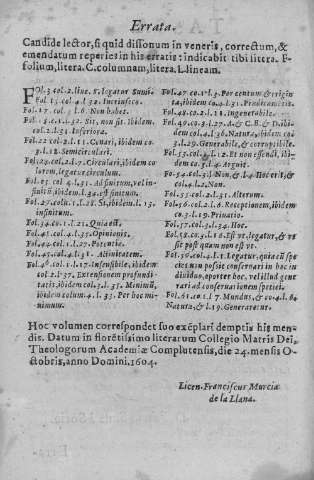 Errata.
Candide lector, si quid dissonum in veneris, correctum, &
emendatum reperies in his erratis: indicabit tibi littera. F.
folium, litera. C. columnam, litera. L. lineam.
Fol. 3 col. 2. line. 8. legatur Sumi.
Fol. 15. col. 4. l. 32. Intrinseco.
Fol. 17. col. 3. l. 6. Non habet.
col. 2. l. 31. Inferiora.
Fol. 22 col. 2. l. 11. Lunari, ibidem co.
3. l. 12. Semicirculari.
Fol. 24. col. 2. l. 7. Circulari, ibidem co
lorem, legatur circulum.
Fol. 25. col. 4. l. 31. Ad finitum, vel in-
finitū, ibidem l. 34. est finitum.
Fol. 27. colū. 1. l. 28. Si, ibidem. l. 13.
infinitum.
Fol. 34. co. 1. l. 21. Quia est.
Fol. 41. col. 4. l. 35. Opinionis.
Fol. 44. col. 1. l. 27. Potentie.
Fol. 45. col. 4. l. 31. Acinitatem.
Fol. 46. col. 1. l. 17. Insensibile, ibidem
col. 2. l. 37. Extensionem profundi-
tatis, ibidem col. 3. l. 35. Minimū,
ibidem colum. 4. l. 35. Per hoc mi-
nimum.
Fol. 47. co. 1. l. 3. Per centum & trigin
ta, ibidem co. 4. l. 31. Prædicamētis.
Fol. 48. co. 2. l. 18. Ingenerabile.
Fol. 49. co. 3. l. 27. A & C. B & D. ibi-
dem col. 4. l. 36. Natura, ibidem col.
3. l. 29. Generabile, & corrupibile.
Fol. 53. col. 4. l. 12. Et non essendi, ibi-
dem co. 3. l. 4. Arguit.
Fo. 54. col. 3. l. Non, & l. 4. Hoc erit, &
col. 4. l. 2. Non.
Fol. 55. col. 2. l. 31. Alterum.
Fol. 56. col. 2. l. 6. Receptionem, ibidem
co. 3. l. 19. Privatio.
Fol. 57. col. 3. l. 34. Hoc.
Fol. 58. co. 3. l. 18. Est vt. legatur, & vt
sic post quam non est vt.
Fol. 59. col. 4. l. 1. Legatur, quia spe
cies non possit conservari in hac in
dividuo, oportet hoc. vel illud gene
rari ad conservationem speciei.
Fol. 61. co. 1. l. 7. Mundus, & co. 4. l. 6.
Natura, l. 19. Generato.
Hoc volumen correspondet suo exēplari demptis his men-
dis. Datum in florētissimo literarum Collegio Matris Dei,
Theologorum Academiæ Complutensis, die 24. mensis O-
ctobris, anno Domini. 1604.
Licen. Franciscus Murcia
de la Llana.